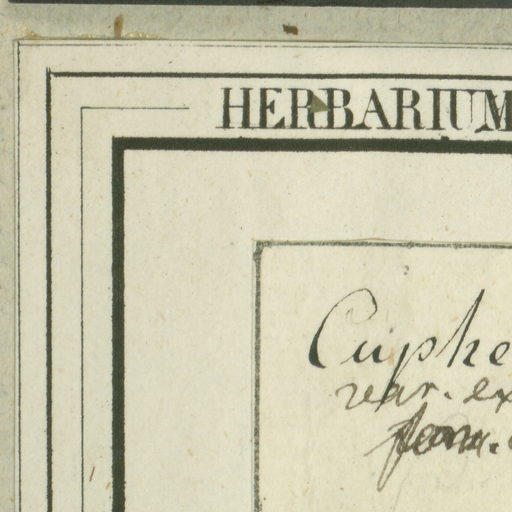 HERBARIUM
Cuphe
var. ex